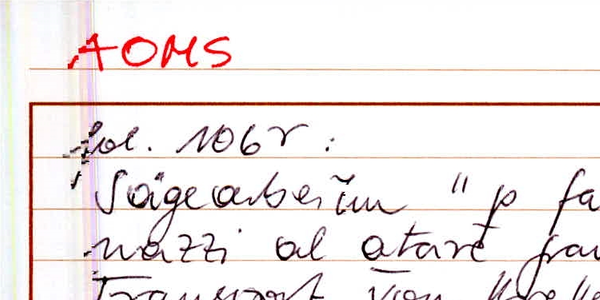 AOMS
fol. 106r:
Sägearbeiten "p fa
nazzi al atare
Transport von